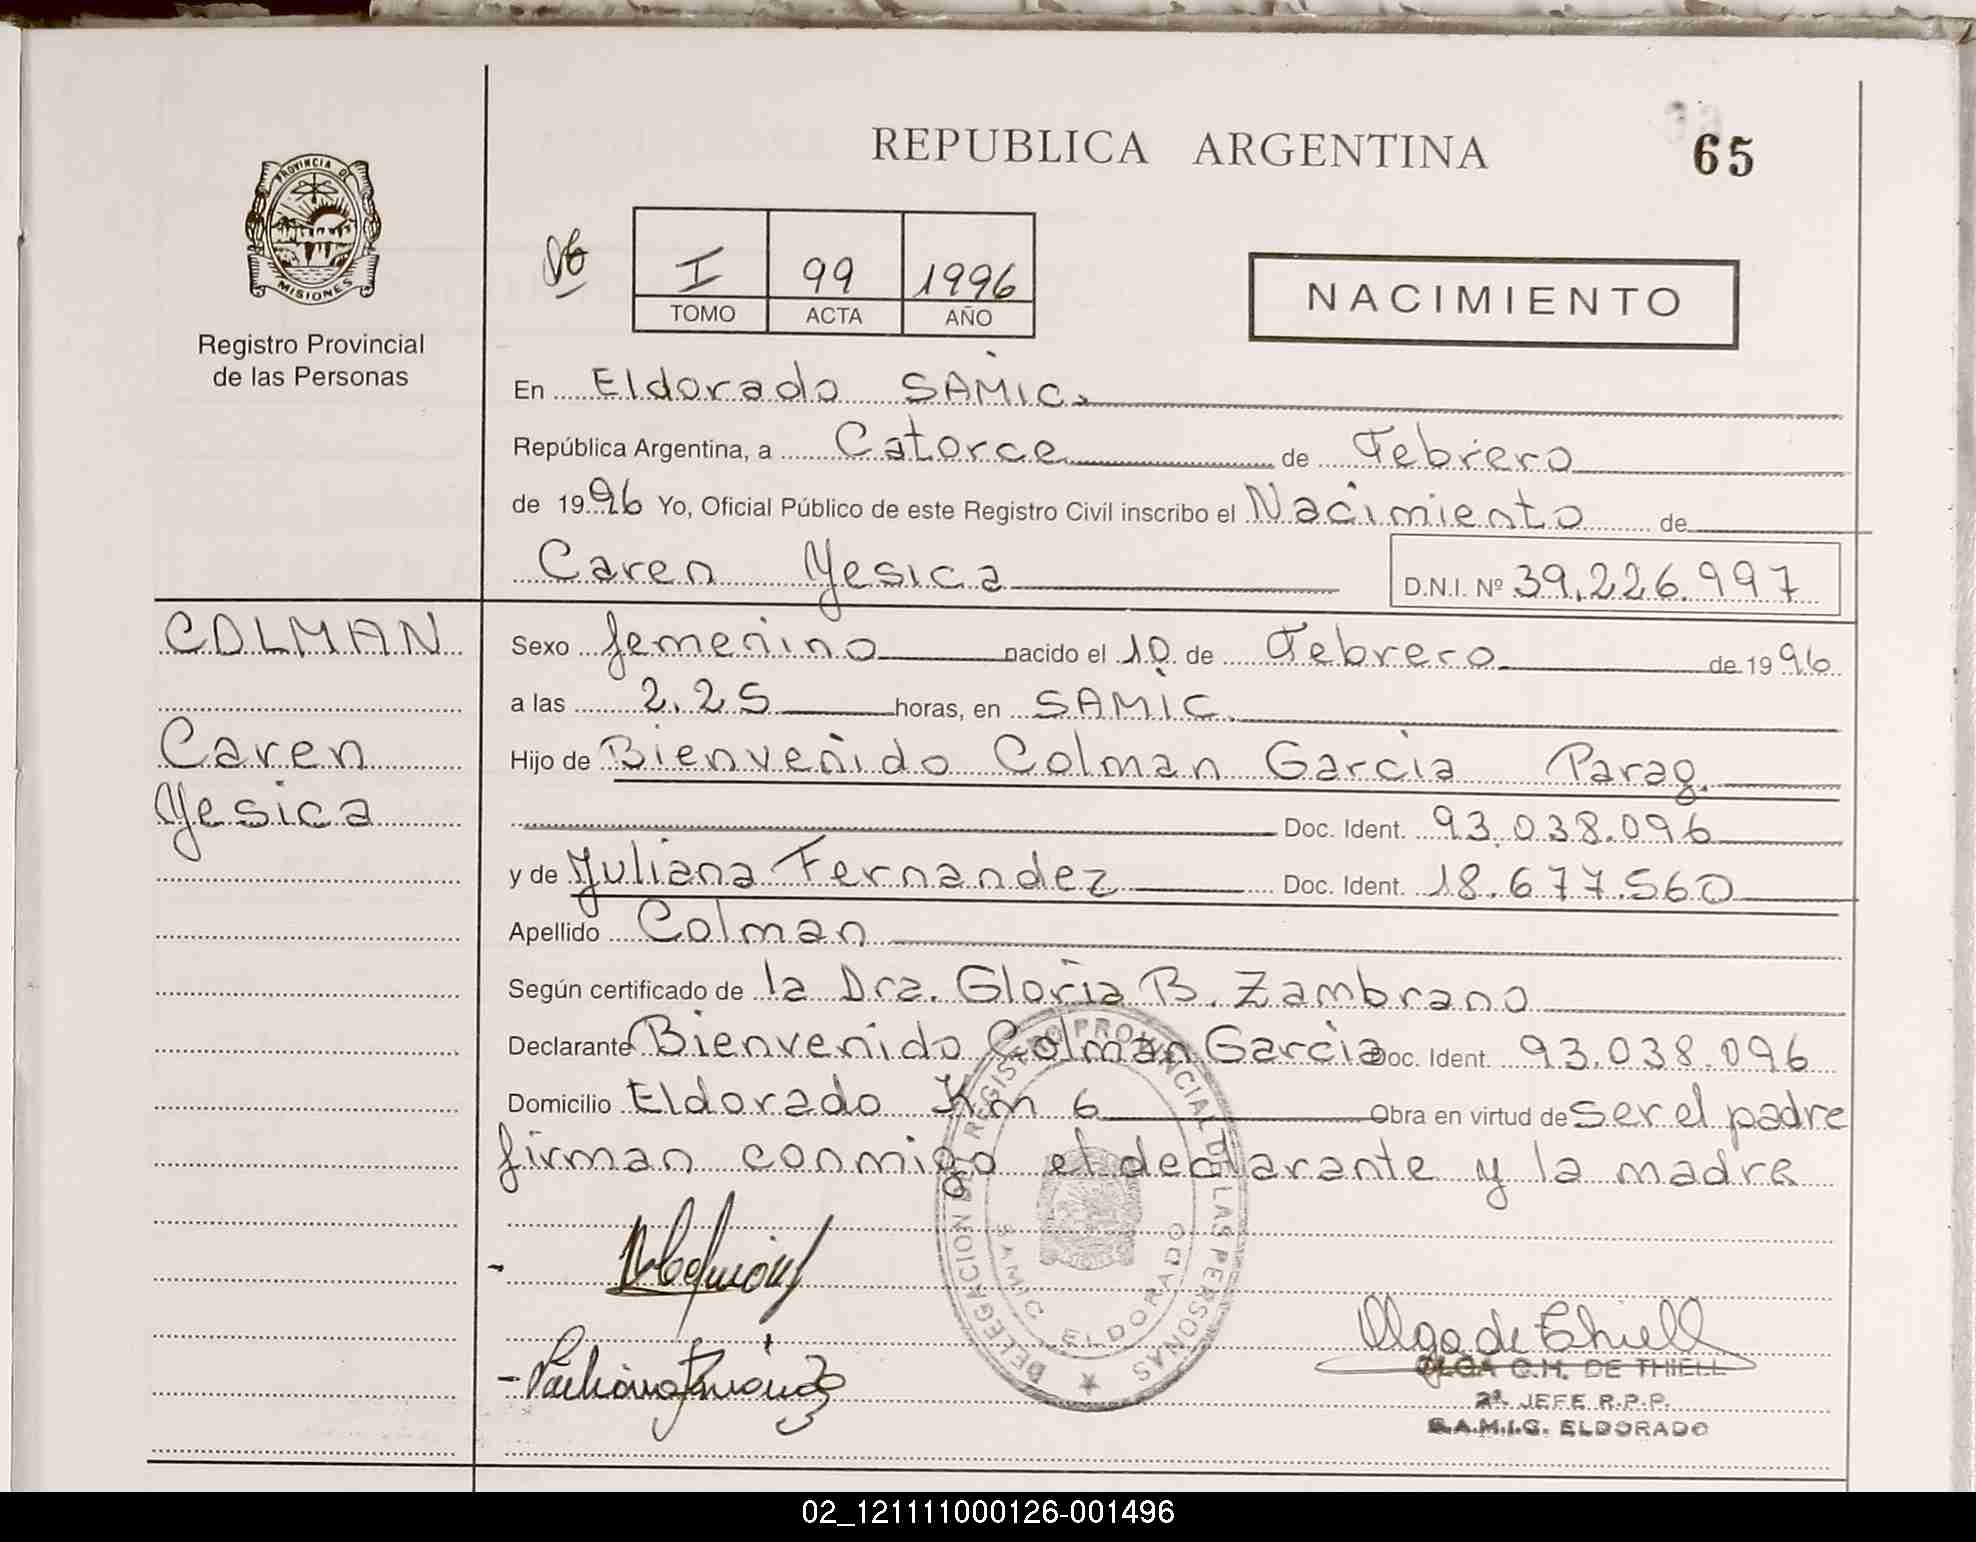 REPUBLICA ARGENTINA
65
PROVINCIA DE
MISIONES
Registro Provincial
de las Personas
I 99 1996
TOMO ACTA AÑO
NACIMIENTO
En Eldorado SAMIC.
República Argentina, a Catorce de Febrero
de 1996 Yo, Oficial Público de este Registro Civil inscribo el Nacimiento de
Caren Yesica D.N.I. Nº 39.226.997
COLMAN
Caren
Yesica
Sexo femenino nacido el 10 de Febrero de 1996
a las 2.25 horas, en SAMIC.
Hijo de Bienvenido Colman Garcia Parag.
Doc. Ident. 93.038.096
y de Yuliana Fernandez Doc. Ident. 18.677.560
Apellido Colman
Según certificado de la Dra. Gloria B. Zambrano
Declarante Bienvenido Colman Garcia Doc. Ident. 93.038.096
Domicilio Eldorado Km 6 Obra en virtud de ser el padre
firman conmigo el declarante y la madre
DELEGACION DE REGISTRO PROVINCIAL DE LAS PERSONAS
SAMIC ELDORADO
Olga de Thiell
OLGA C.H. DE THIELL
2ª. JEFE R.P.P.
S.A.M.I.C. ELDORADO
02_121111000126-001496